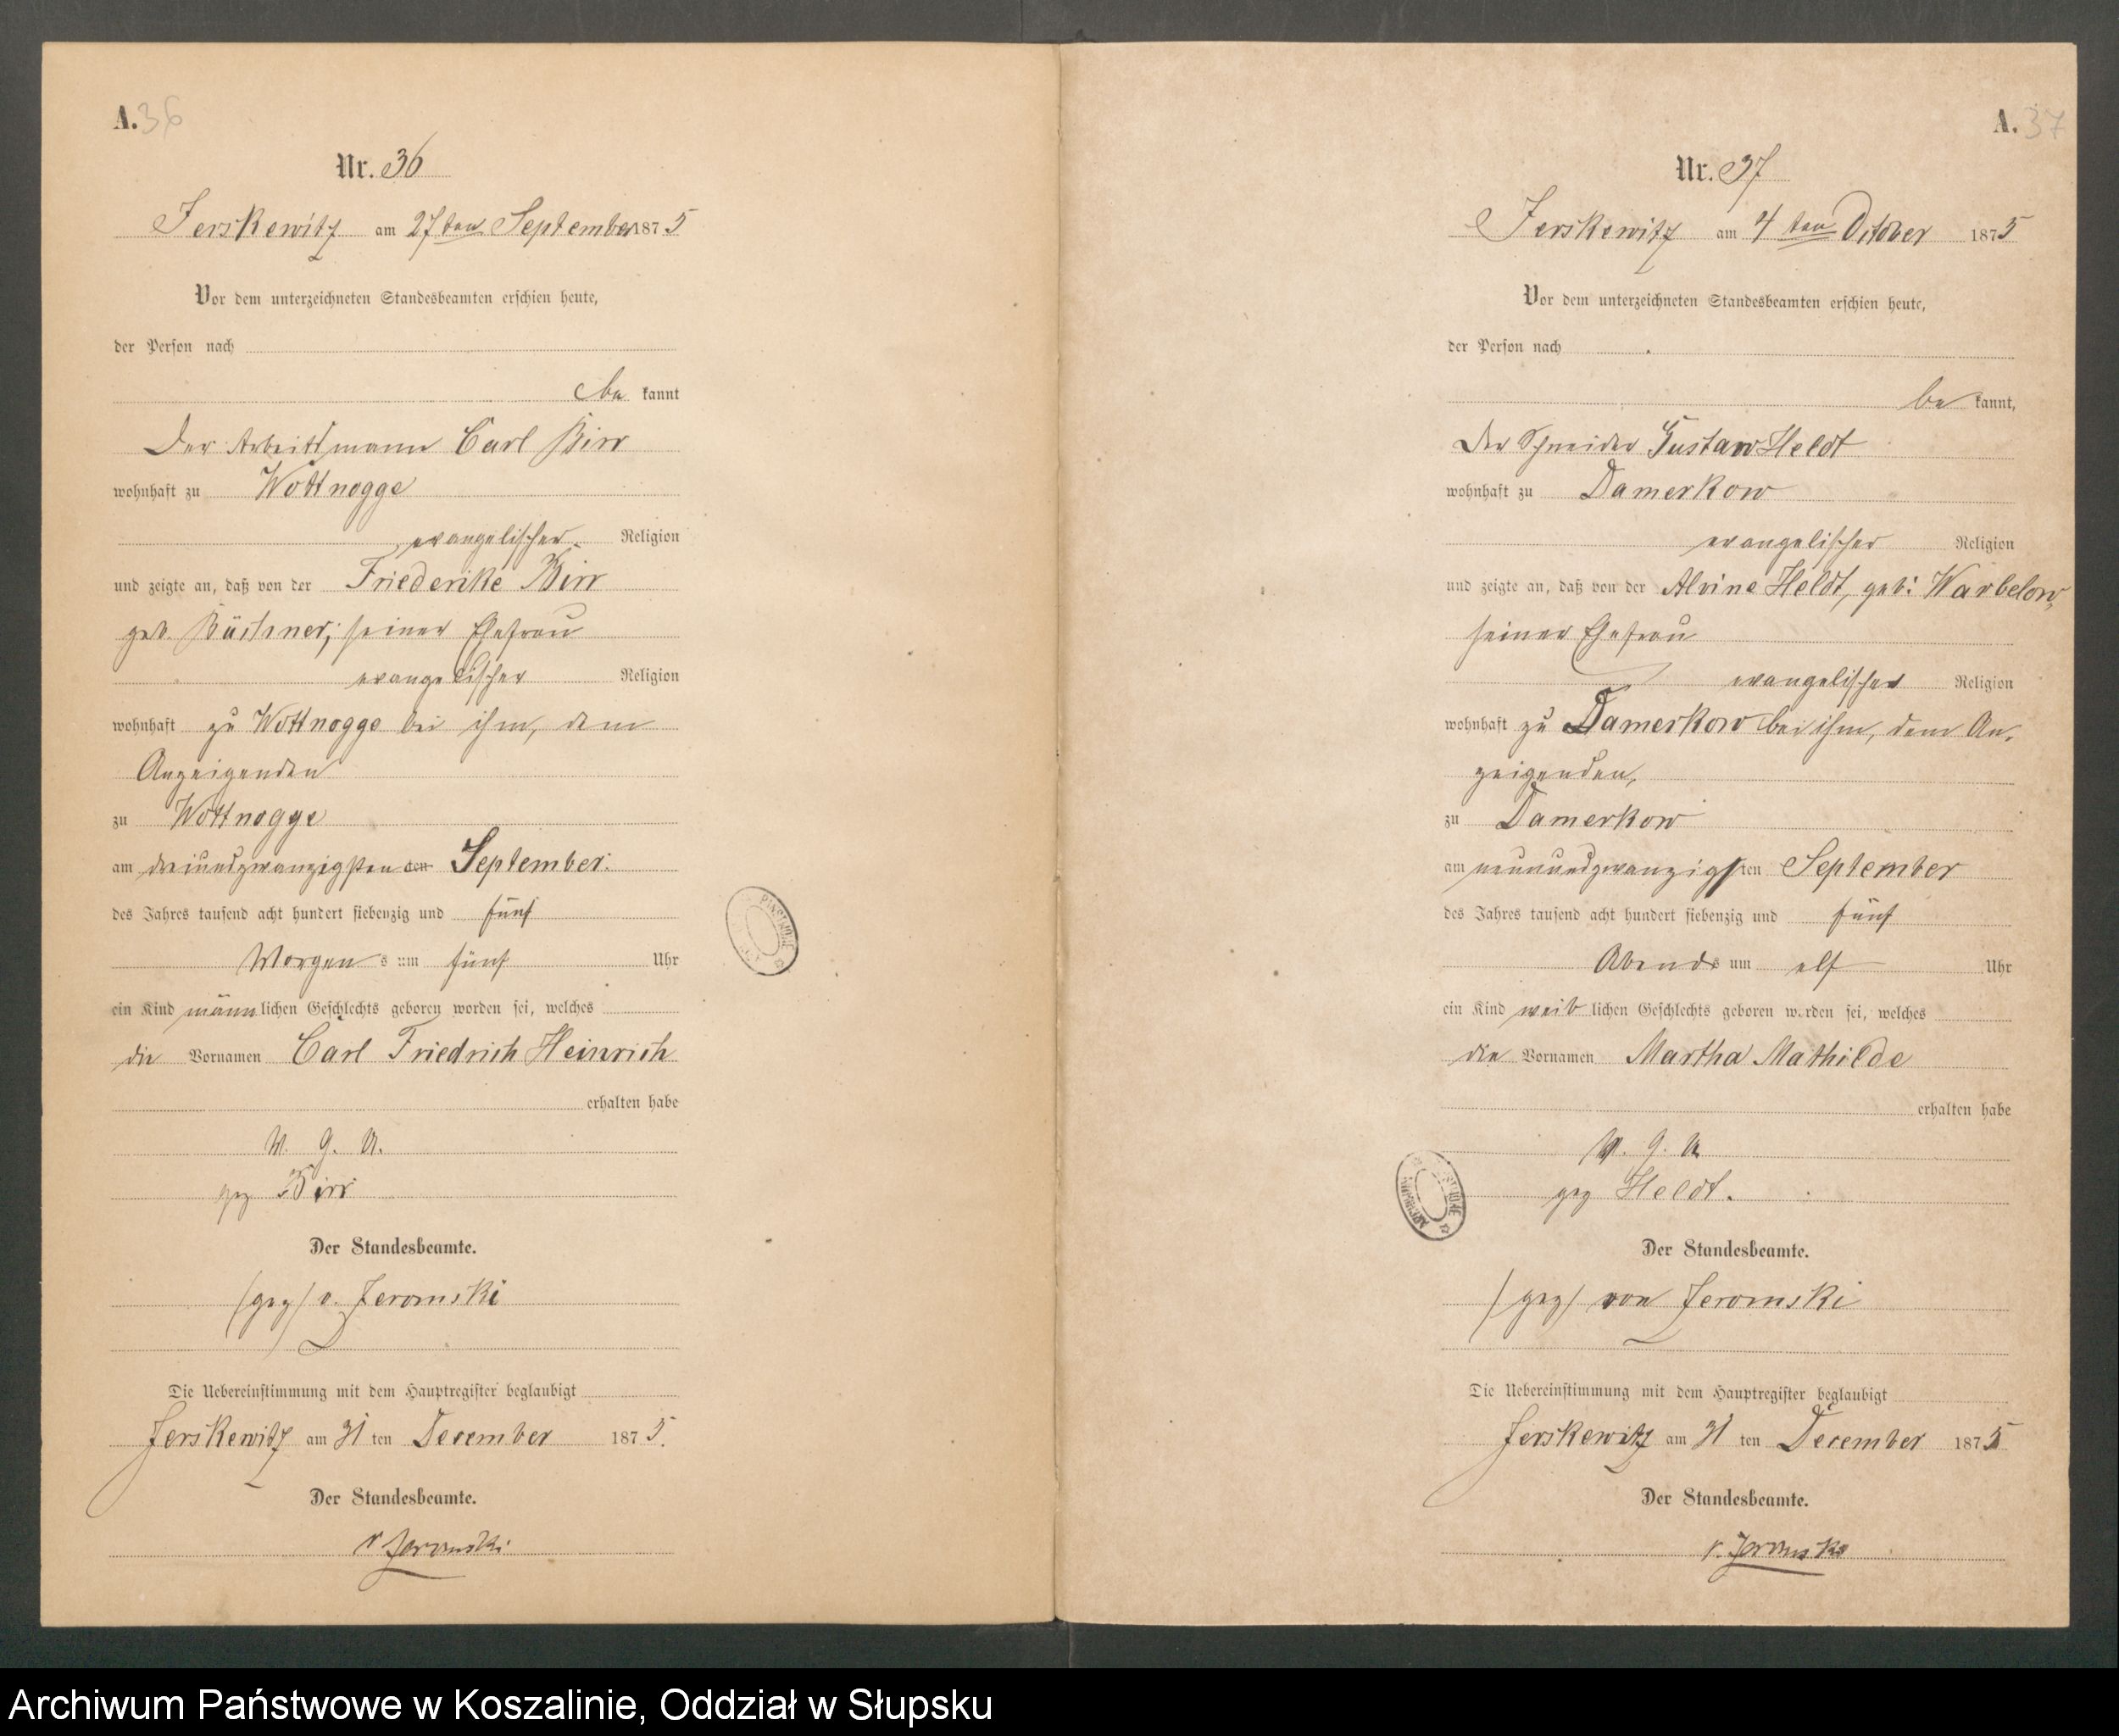 A. 36
Nr. 36
Jerskewitz am 27ten September 1875
Vor dem unterzeichneten Standesbeamten erschien heute,
der Person nach
be kannt
Der Arbeitsmann Carl Birr
wohnhaft zu Wottnogge
evangelischer Religion
und zeigte an, daß von der Friederike Birr
geb. Büschner, seiner Ehefrau
evangelischer Religion
wohnhaft zu Wottnogge bei ihm, dem
Anzeigenden
zu Wottnogge
am dreiundzwanzigsten ten September
des Jahres tausend acht hundert siebenzig und fünf
Morgens um fünf Uhr
ein Kind männlichen Geschlechts geboren worden sei, welches
die Vornamen Carl Friedrich Heinrich
erhalten habe
V. g. U.
gez Birr
Der Standesbeamte.
(gez) v. Jeromski
Die Uebereinstimmung mit dem Hauptregister beglaubigt
Jerskewitz am 31 ten December 1875.
Der Standesbeamte.
v Jeromski
A. 37
Nr. 37
Jerskewitz am 4 ten October 1875
Vor dem unterzeichneten Standesbeamten erschien heute,
der Person nach
be kannt,
Der Schneider Gustav Heldt
wohnhaft zu Damerkow
evangelischer Religion
und zeigte an, daß von der Alvine Heldt, geb: Warbelow,
seiner Ehefrau
evangelischer Religion
wohnhaft zu Damerkow bei ihm, dem An-
zeigenden,
zu Damerkow
am neunundzwanzigsten September
des Jahres tausend acht hundert siebenzig und fünf
Abends um elf Uhr
ein Kind weiblichen Geschlechts geboren worden sei, welches
die Vornamen Martha Mathilde
erhalten habe
V. g. U
gez Heldt.
Der Standesbeamte.
(gez) von Jeromski
Die Uebereinstimmung mit dem Hauptregister beglaubigt
Jerskewitz am 31 ten December 1875
Der Standesbeamte.
v. Jeromski
Archiwum Państwowe w Koszalinie, Oddział w Słupsku